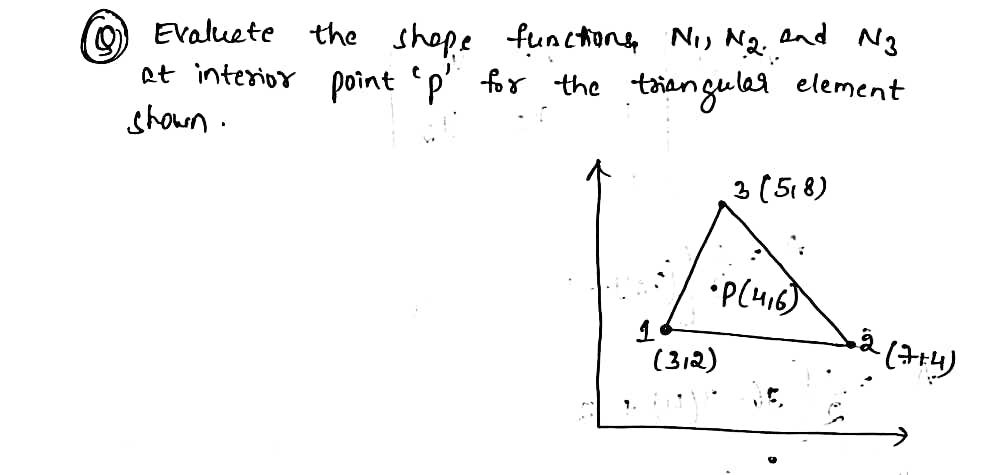 Q Evaluate the shape functions, N1, N2, and N3
at interior point 'p' for the triangular element
shown.
3 (5,8)
•P(4,6)
1
2 (7,4)
(3,2)